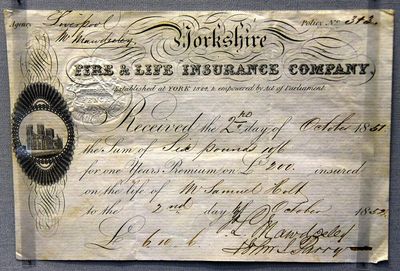 Agency Liverpool Policy No. 382
Mr Mawdesley
Yorkshire
FIRE & LIFE INSURANCE COMPANY,
Established at YORK 1824, & empowered by Act of Parliament.
Received the 2nd day of October 1851
the Sum of Six Pounds 10/6
for one Years Premium on £ 200. insured
on the life of Mr Samuel Holt
to the 2nd day of October 1852.
£ 6 10 6 Mawdesley
John Parry